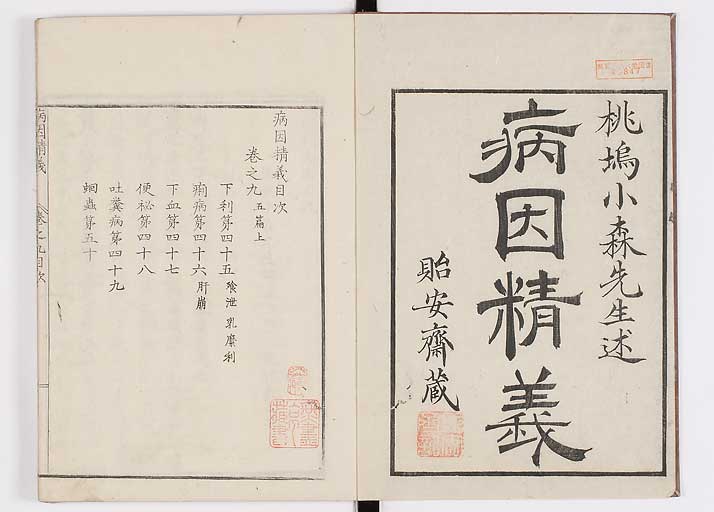 桃塢小森先生述
病因精義
貽安齋蔵
病因精義目次
卷之九 五篇上
下利第四十五 飧泄 乳糜利
痢病第四十六 肝崩
下血第四十七
便祕第四十八
吐糞病第四十九
蛔蟲第五十
病因精義 卷之九目次